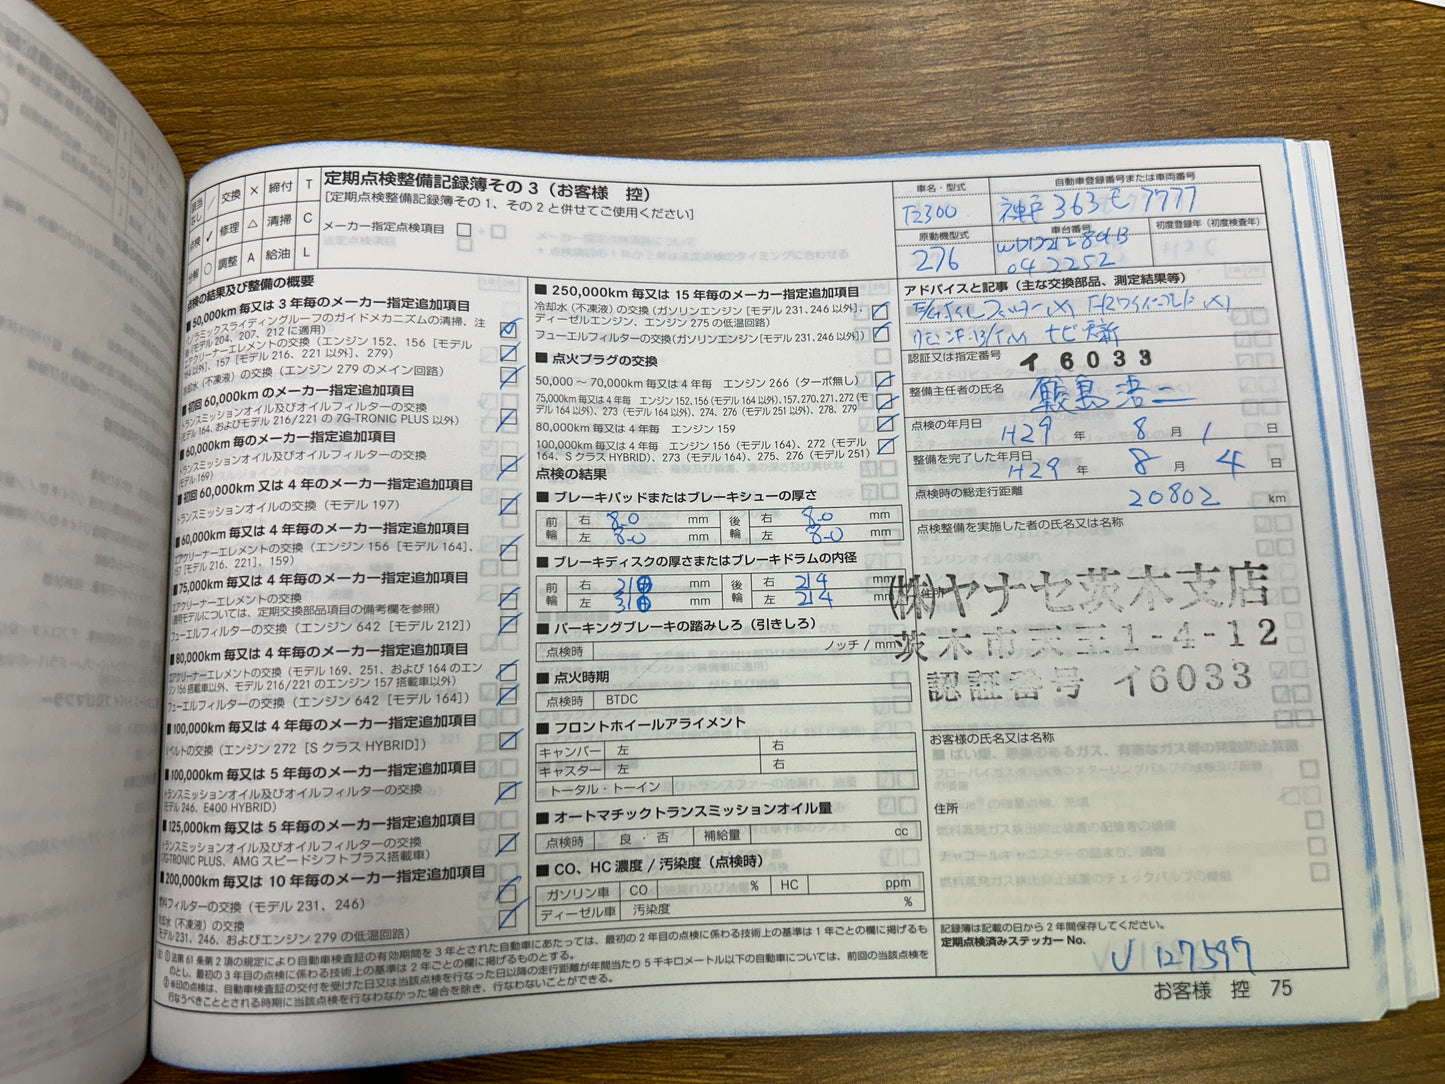 定期点検整備記録簿その 3（お客様　控）
[定期点検整備記録簿その 1、その 2 と併せてご使用ください]
メーカー指定点検項目
交換 × 締付 T
修理 △ 清掃 C
調整 A 給油 L
点検の結果及び整備の概要
■50,000km 毎又は 3 年毎のメーカー指定追加項目
パノラミックスライディングルーフのガイドメカニズムの清掃、注
モデル 204、207、212 に適用）
エアクリーナーエレメントの交換（エンジン 152、156［モデル
164 以外］、157［モデル 216、221 以外］、279）
冷却水（不凍液）の交換（エンジン 279 のメイン回路）
■初回 60,000km のメーカー指定追加項目
トランスミッションオイル及びオイルフィルターの交換
モデル 164、およびモデル 216/221 の 7G-TRONIC PLUS 以外）
60,000km 毎のメーカー指定追加項目
トランスミッションオイル及びオイルフィルターの交換
モデル 169）
■初回 60,000km 又は 4 年毎のメーカー指定追加項目
トランスミッションオイルの交換（モデル 197）
■60,000km 毎又は 4 年毎のメーカー指定追加項目
エアクリーナーエレメントの交換（エンジン 156［モデル 164］、
157［モデル 216、221］、159）
■75,000km 毎又は 4 年毎のメーカー指定追加項目
エアクリーナーエレメントの交換
適用モデルについては、定期交換部品項目の備考欄を参照）
フューエルフィルターの交換（エンジン 642［モデル 212］）
■80,000km 毎又は 4 年毎のメーカー指定追加項目
エアクリーナーエレメントの交換（モデル 169、251、および 164 のエン
ジン 156 搭載車以外、モデル 216/221 のエンジン 157 搭載車以外）
フューエルフィルターの交換（エンジン 642［モデル 164］）
■100,000km 毎又は 4 年毎のメーカー指定追加項目
Vベルトの交換（エンジン 272［S クラス HYBRID］）
■100,000km 毎又は 5 年毎のメーカー指定追加項目
トランスミッションオイル及びオイルフィルターの交換
モデル 246、E400 HYBRID）
■125,000km 毎又は 5 年毎のメーカー指定追加項目
トランスミッションオイル及びオイルフィルターの交換
7G-TRONIC PLUS、AMG スピードシフトプラス搭載車）
■200,000km 毎又は 10 年毎のメーカー指定追加項目
燃料フィルターの交換（モデル 231、246）
冷却水（不凍液）の交換
モデル 231、246、およびエンジン 279 の低温回路）
■ 250,000km 毎又は 15 年毎のメーカー指定追加項目
冷却水（不凍液）の交換（ガソリンエンジン［モデル 231、246 以外］、
ディーゼルエンジン、エンジン 275 の低温回路）
フューエルフィルターの交換（ガソリンエンジン［モデル 231、246 以外］）
■ 点火プラグの交換
50,000 ～ 70,000km 毎又は 4 年毎　エンジン 266（ターボ無し）
75,000km 毎又は 4 年毎　エンジン 152、156（モデル 164 以外）、157、270、271、272（モ
デル 164 以外）、273（モデル 164 以外）、274、276（モデル 251 以外）、278、279
80,000km 毎又は 4 年毎　エンジン 159
100,000km 毎又は 4 年毎　エンジン 156（モデル 164）、272（モデル
164、S クラス HYBRID）、273（モデル 164）、275、276（モデル 251）
点検の結果
■ ブレーキパッドまたはブレーキシューの厚さ
前輪 右 8.0 mm 後輪 右 8.0 mm
左 8.0 mm 左 8.0 mm
■ ブレーキディスクの厚さまたはブレーキドラムの内径
前輪 右 mm 後輪 右 214 mm
左 mm 左 214 mm
■ パーキングブレーキの踏みしろ（引きしろ）
点検時 ノッチ / mm
■ 点火時期
点検時 BTDC
■ フロントホイールアライメント
キャンバー 左 右
キャスター 左 右
トータル・トーイン
■ オートマチックトランスミッションオイル量
点検時 良 ・ 否 補給量 cc
■ CO、HC 濃度 / 汚染度（点検時）
ガソリン車 CO % HC ppm
ディーゼル車 汚染度 %
車名・型式
自動車登録番号または車両番号
神戸 363 7777
原動機型式
276
車台番号
042252
初度登録年（初度検査年）
アドバイスと記事（主な交換部品、測定結果等）
認証又は指定番号 イ 6033
整備主任者の氏名
点検の年月日 H29 年 8 月 1 日
整備を完了した年月日 H29 年 8 月 4 日
点検時の総走行距離 20802 km
点検整備を実施した者の氏名又は名称
㈱ヤナセ茨木支店
住所
茨木市天王1-4-12
認証番号　イ6033
お客様の氏名又は名称
住所
記録簿は記載の日から 2 年間保存してください。
定期点検済みステッカー No.
U 127597
① 法第 61 条第 2 項の規定により自動車検査証の有効期間を 3 年とされた自動車にあたっては、最初の 2 年目の点検に係わる技術上の基準は 1 年ごとの欄に掲げるも
のとし、最初の 3 年目の点検に係わる技術上の基準は 2 年ごとの欄に掲げるものとする。
② ※印の点検は、自動車検査証の交付を受けた日又は当該点検を行なった日以降の走行距離が年間当たり 5 千キロメートル以下の自動車については、前回の当該点検を
行なうべきこととされる時期に当該点検を行なわなかった場合を除き、行なわないことができる。
お客様　控　75